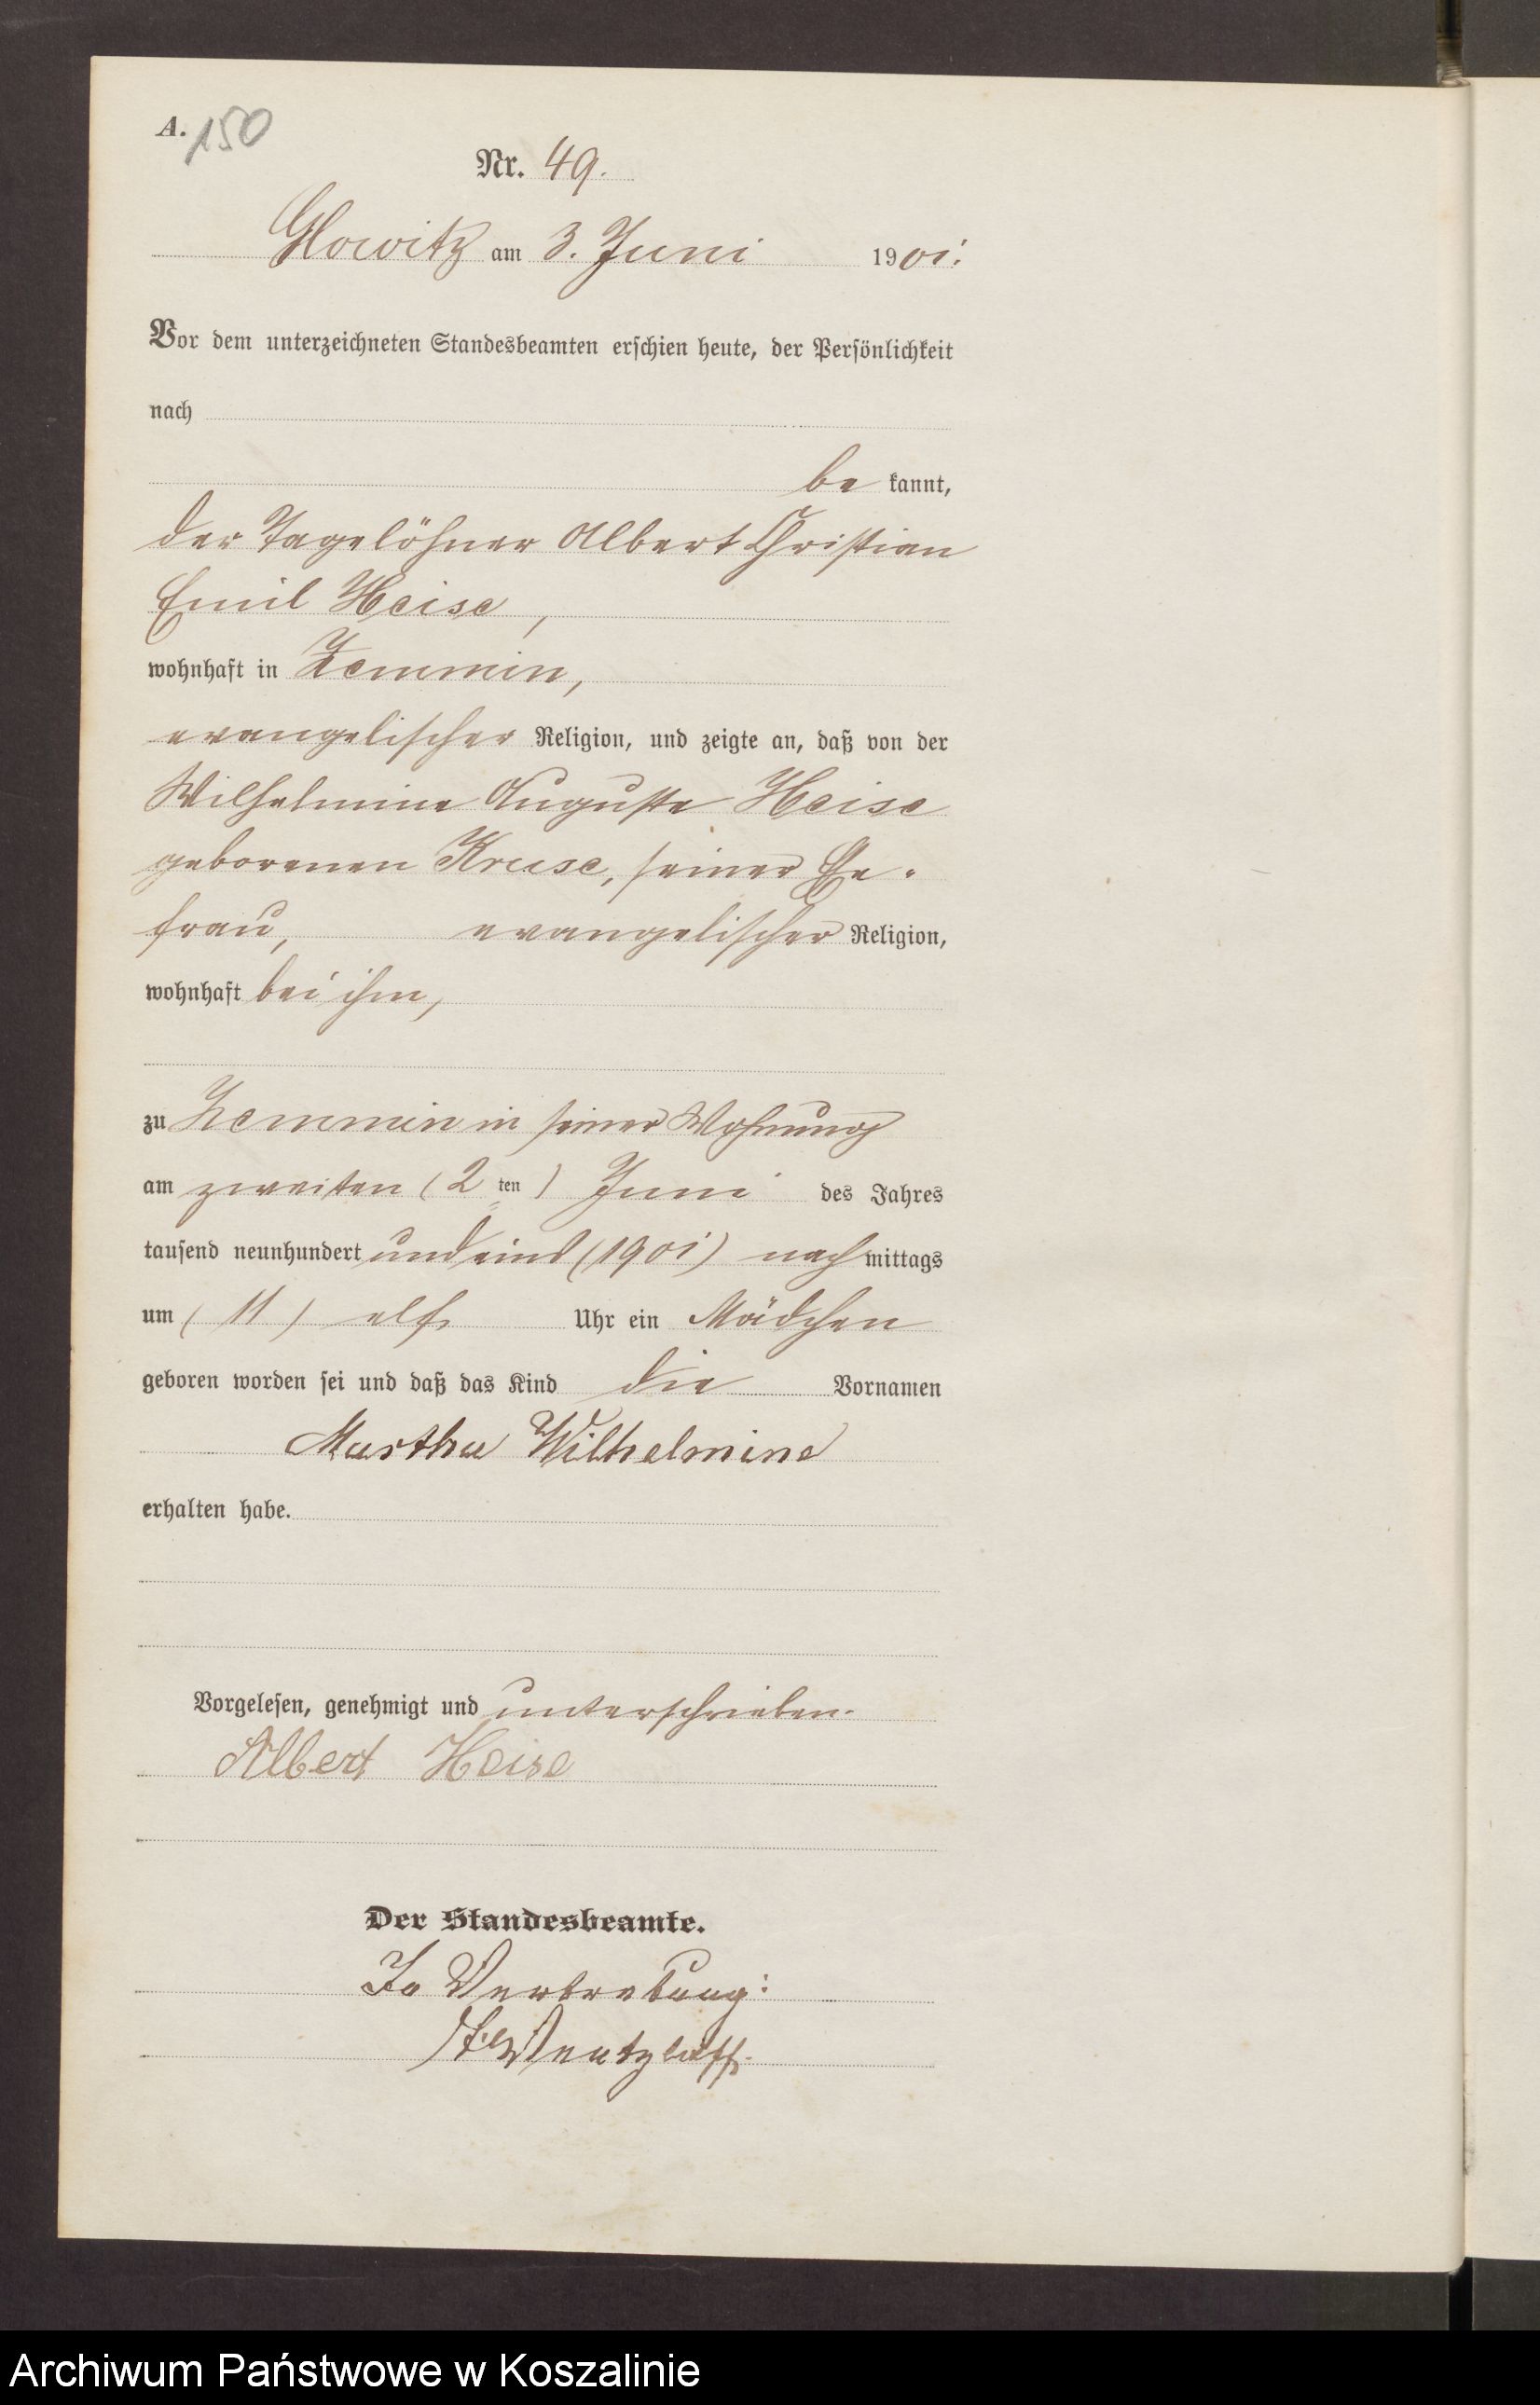 A. 150
Nr. 49.
Glowitz am 3. Juni 1901.
Vor dem unterzeichneten Standesbeamten erschien heute, der Persönlichkeit
nach
be kannt,
der Tagelöhner Albert Christian
Emil Heise,
wohnhaft in Zemmin,
evangelischer Religion, und zeigte an, daß von der
Wilhelmine Auguste Heise
geborenen Kruse, seiner Ehe-
frau, evangelischer Religion,
wohnhaft bei ihm,
zu Zemmin in seiner Wohnung
am zweiten (2 ten) Juni des Jahres
tausend neunhundert und eins (1901) nach mittags
um (11) elf Uhr ein Mädchen
geboren worden sei und daß das Kind die Vornamen
Martha Wilhelmine
erhalten habe.
Vorgelesen, genehmigt und unterschrieben.
Albert Heise
Der Standesbeamte.
In Vertretung:
Wentzlaff.
Archiwum Państwowe w Koszalinie